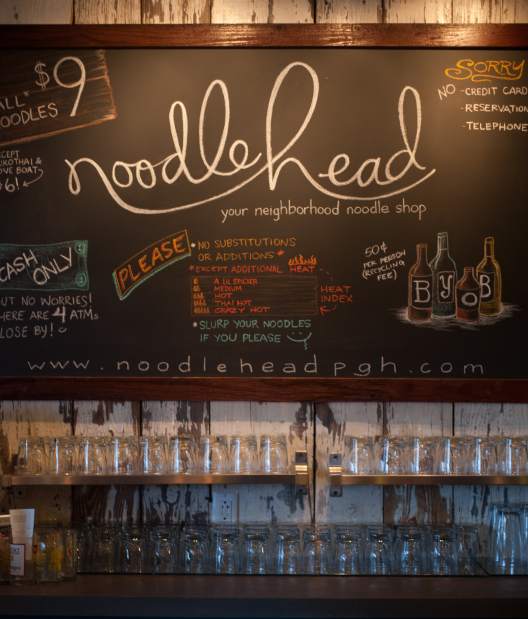 $9
ALL*
NOODLES
EXCEPT
SUKOTHAI &
LOVE BOAT
$6!
noodlehead
your neighborhood noodle shop
SORRY
NO - CREDIT CARD
- RESERVATION
- TELEPHONE
CASH
ONLY
BUT NO WORRIES!
THERE ARE 4 ATMs
CLOSE BY!
PLEASE
* NO SUBSTITUTIONS
OR ADDITIONS *
* EXCEPT ADDITIONAL HEAT
MEDIUM
HOT
THAI HOT
CRAZY HOT
HEAT
INDEX
* SLURP YOUR NOODLES
IF YOU PLEASE
50¢
PER PERSON
(RECYCLING
FEE)
BYOB
www.noodleheadpgh.com